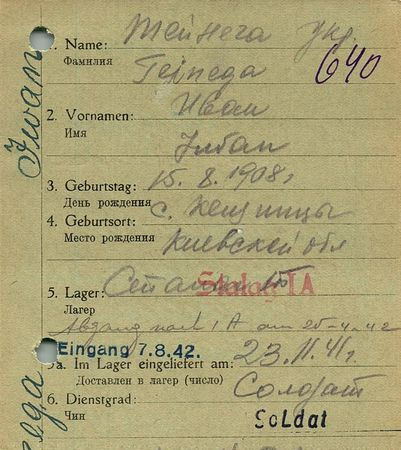 1. Name:
Фамилия
640
2. Vornamen:
Иван
Имя
Iwan
3. Geburtstag: 15. 8. 1908 г
День рождения
4. Geburtsort: с.
Место рождения
Киевской обл
5. Lager: Stalag IA
Лагерь
Abgang nach I A am 25-4-42
Eingang 7.8.42.
5a. Im Lager eingeliefert am: 23. 11. 41 г.
Доставлен в лагерь (число)
6. Dienstgrad: Солдат
Чин
Soldat